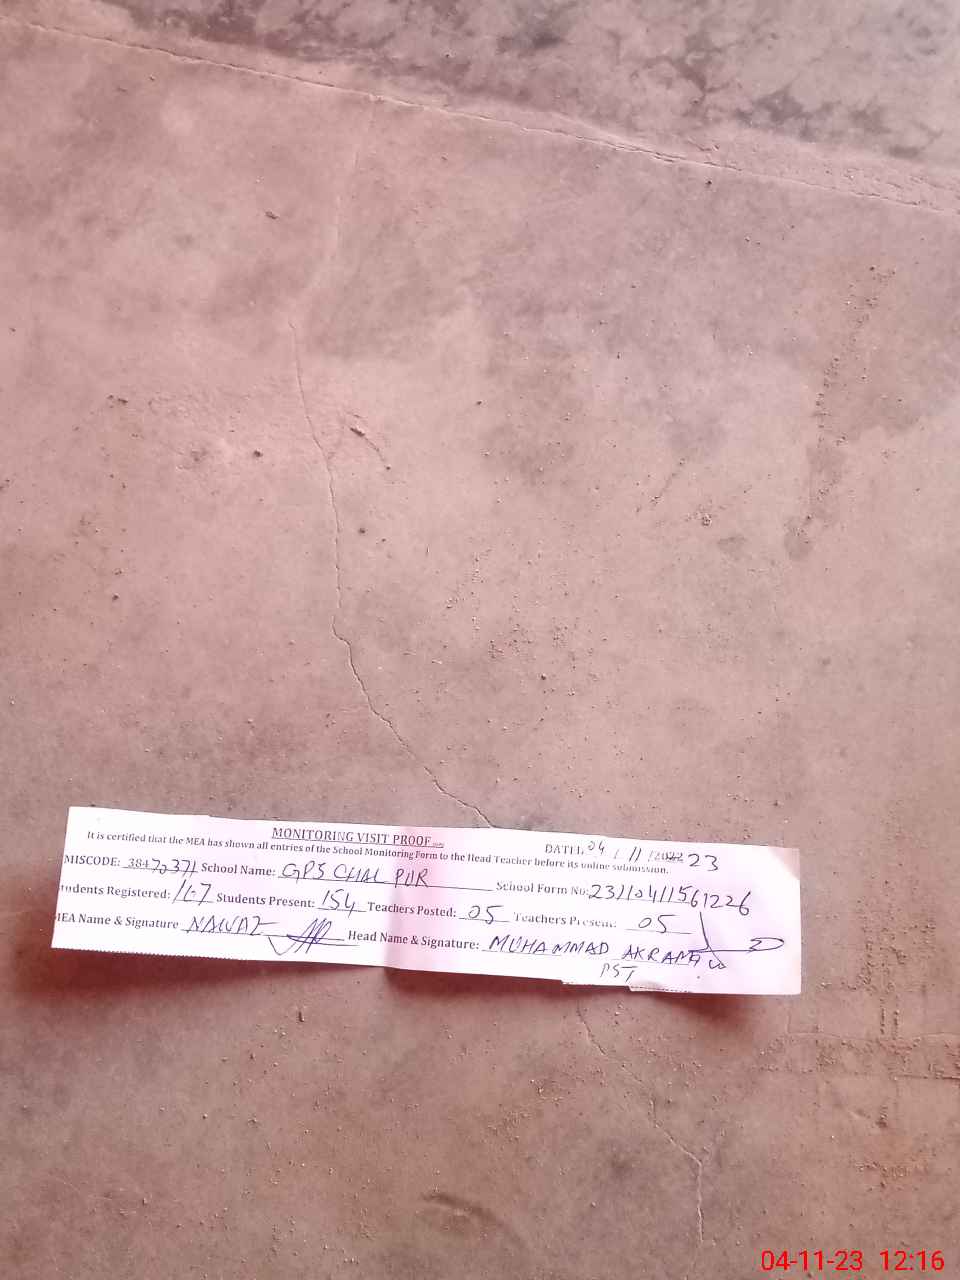 MONITORING VISIT PROOF
DATE: 04 / 11 /2022 23
It is certified that the MEA has shown all entries of the School Monitoring Form to the Head Teacher before its online submission.
MISCODE: 38470371 School Name: GPS CHAL PUR School Form No: 23110411561226
tudents Registered: Students Present: 154 Teachers Posted: 05 Teachers Present: 05
MEA Name & Signature NAWAZ Head Name & Signature: MUHAMMAD AKRAM
PST
04-11-23 12:16